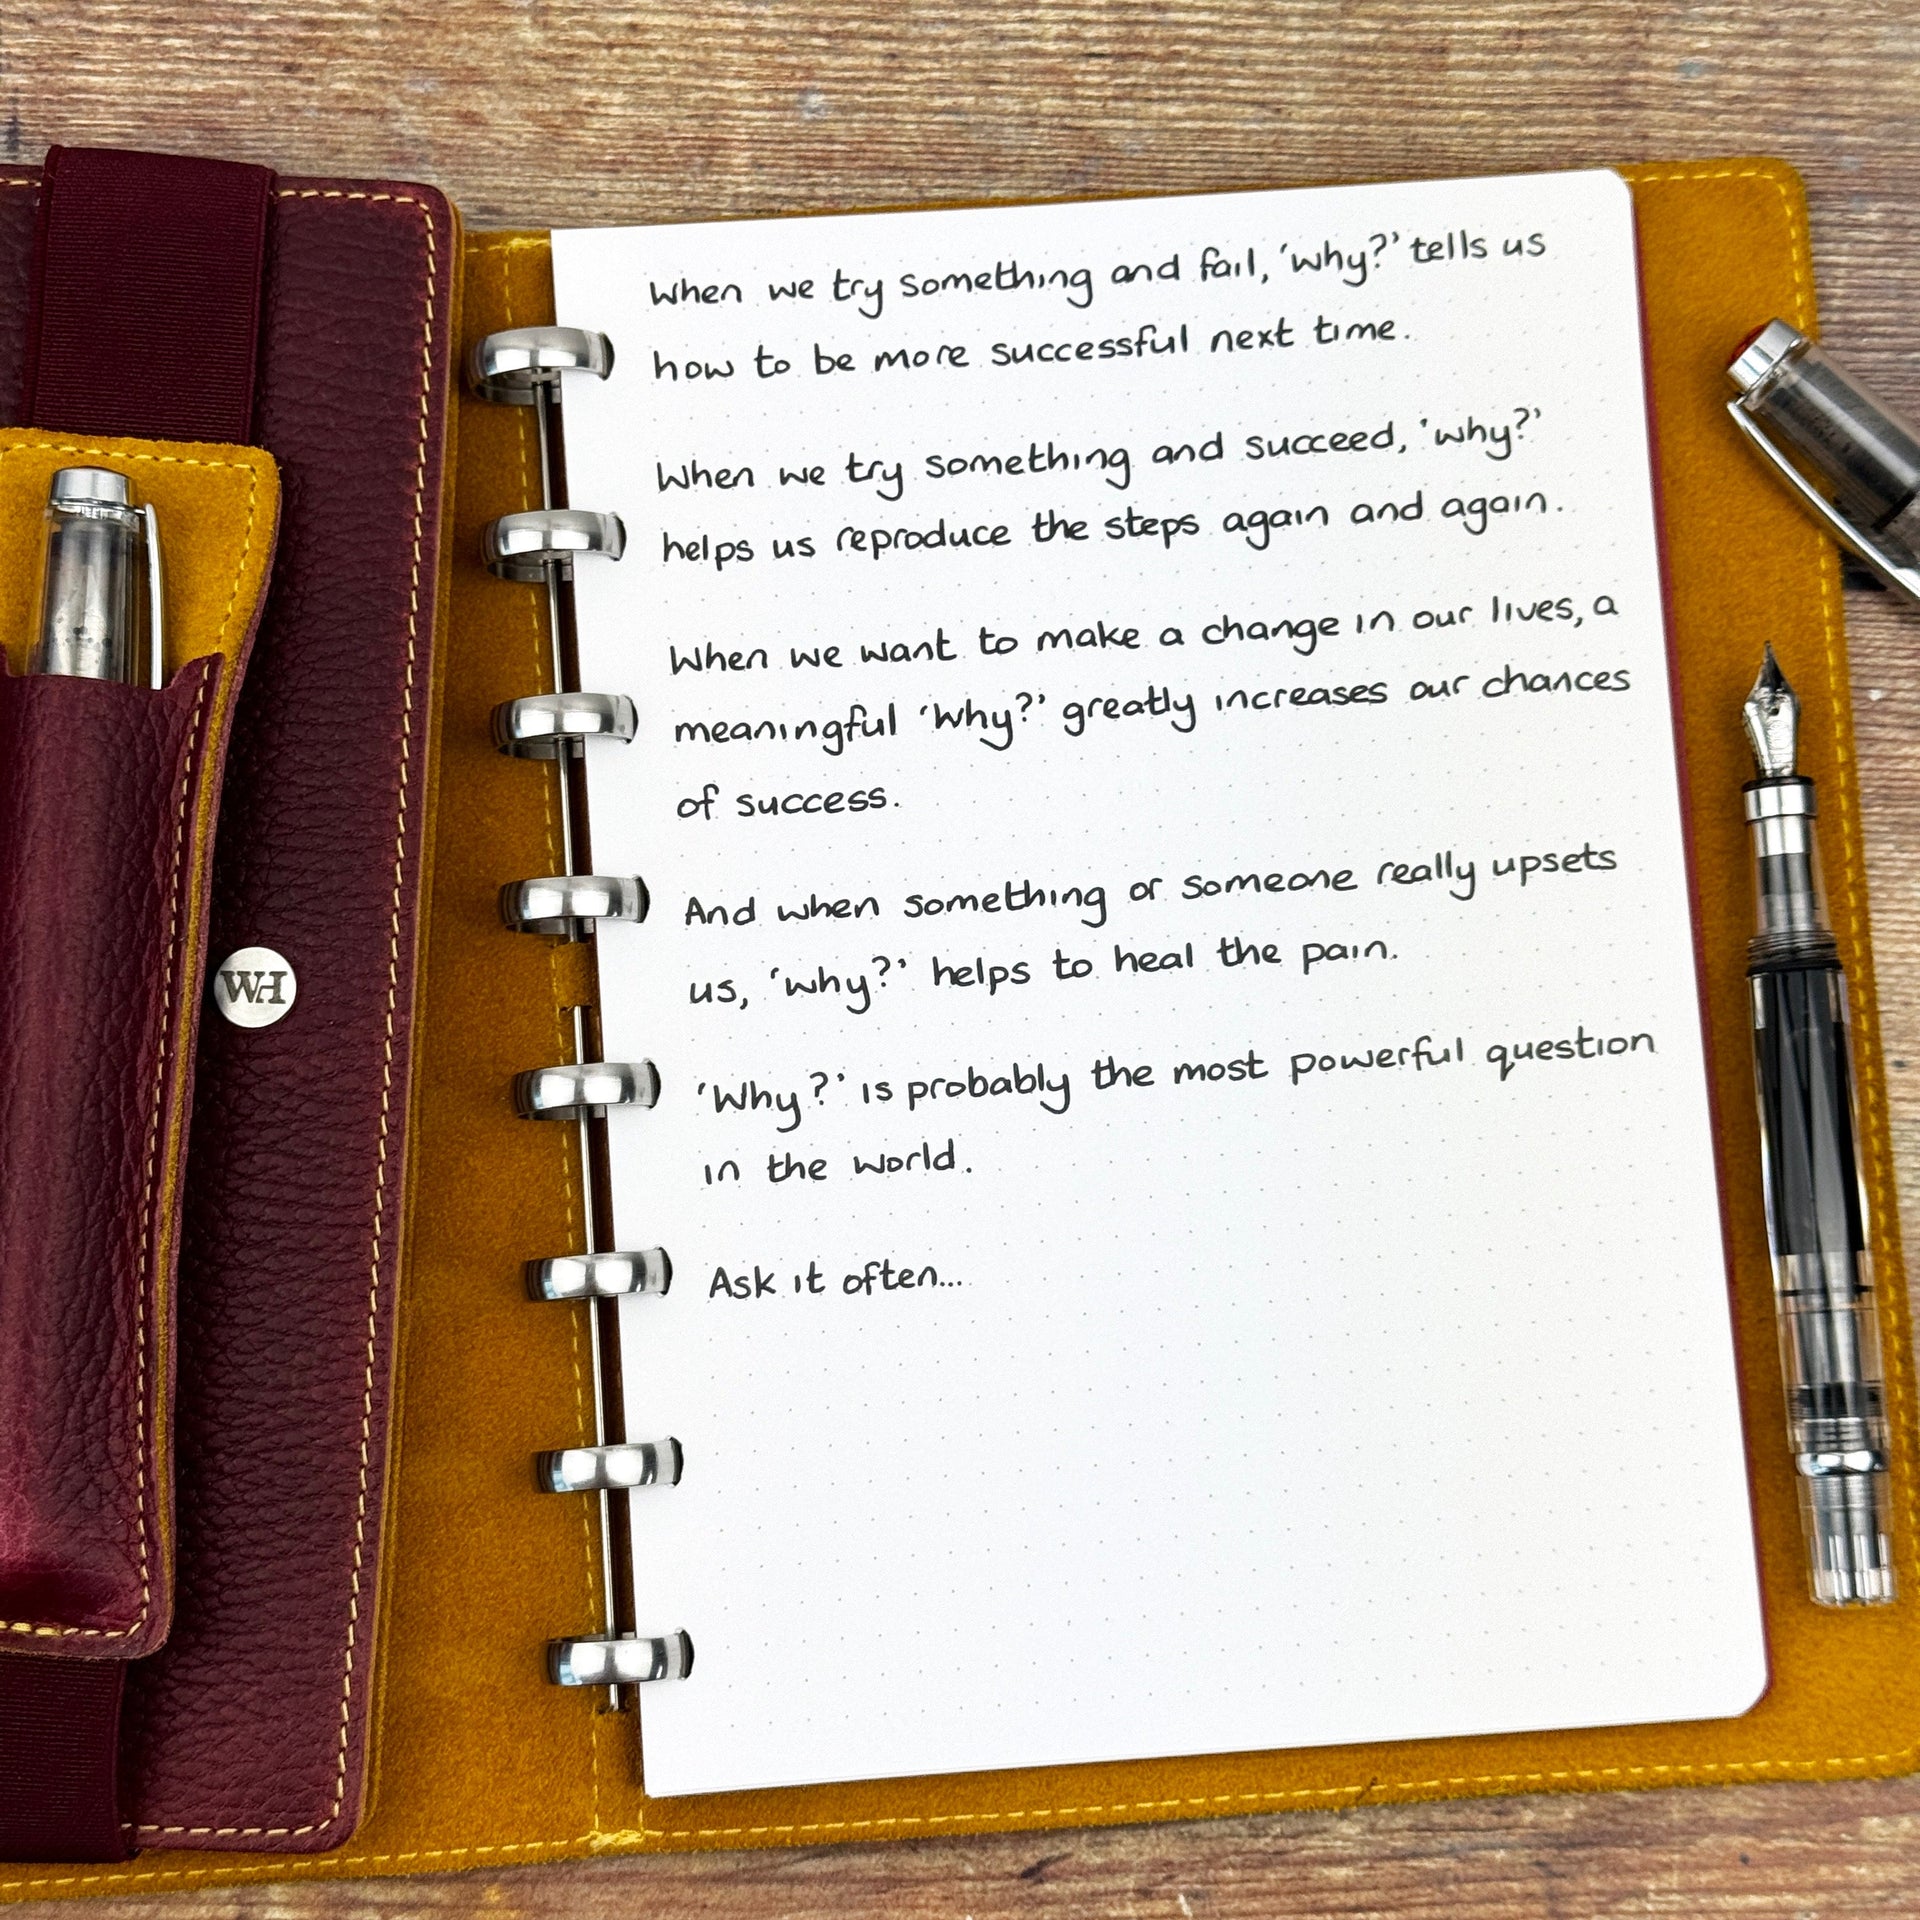 When we try something and fail, 'why?' tells us
how to be more successful next time.
When we try something and succeed, 'why?'
helps us reproduce the steps again and again.
When we want to make a change in our lives, a
meaningful 'why?' greatly increases our chances
of success.
And when something or someone really upsets
us, 'why?' helps to heal the pain.
'Why?' is probably the most powerful question
in the world.
Ask it often...
WH